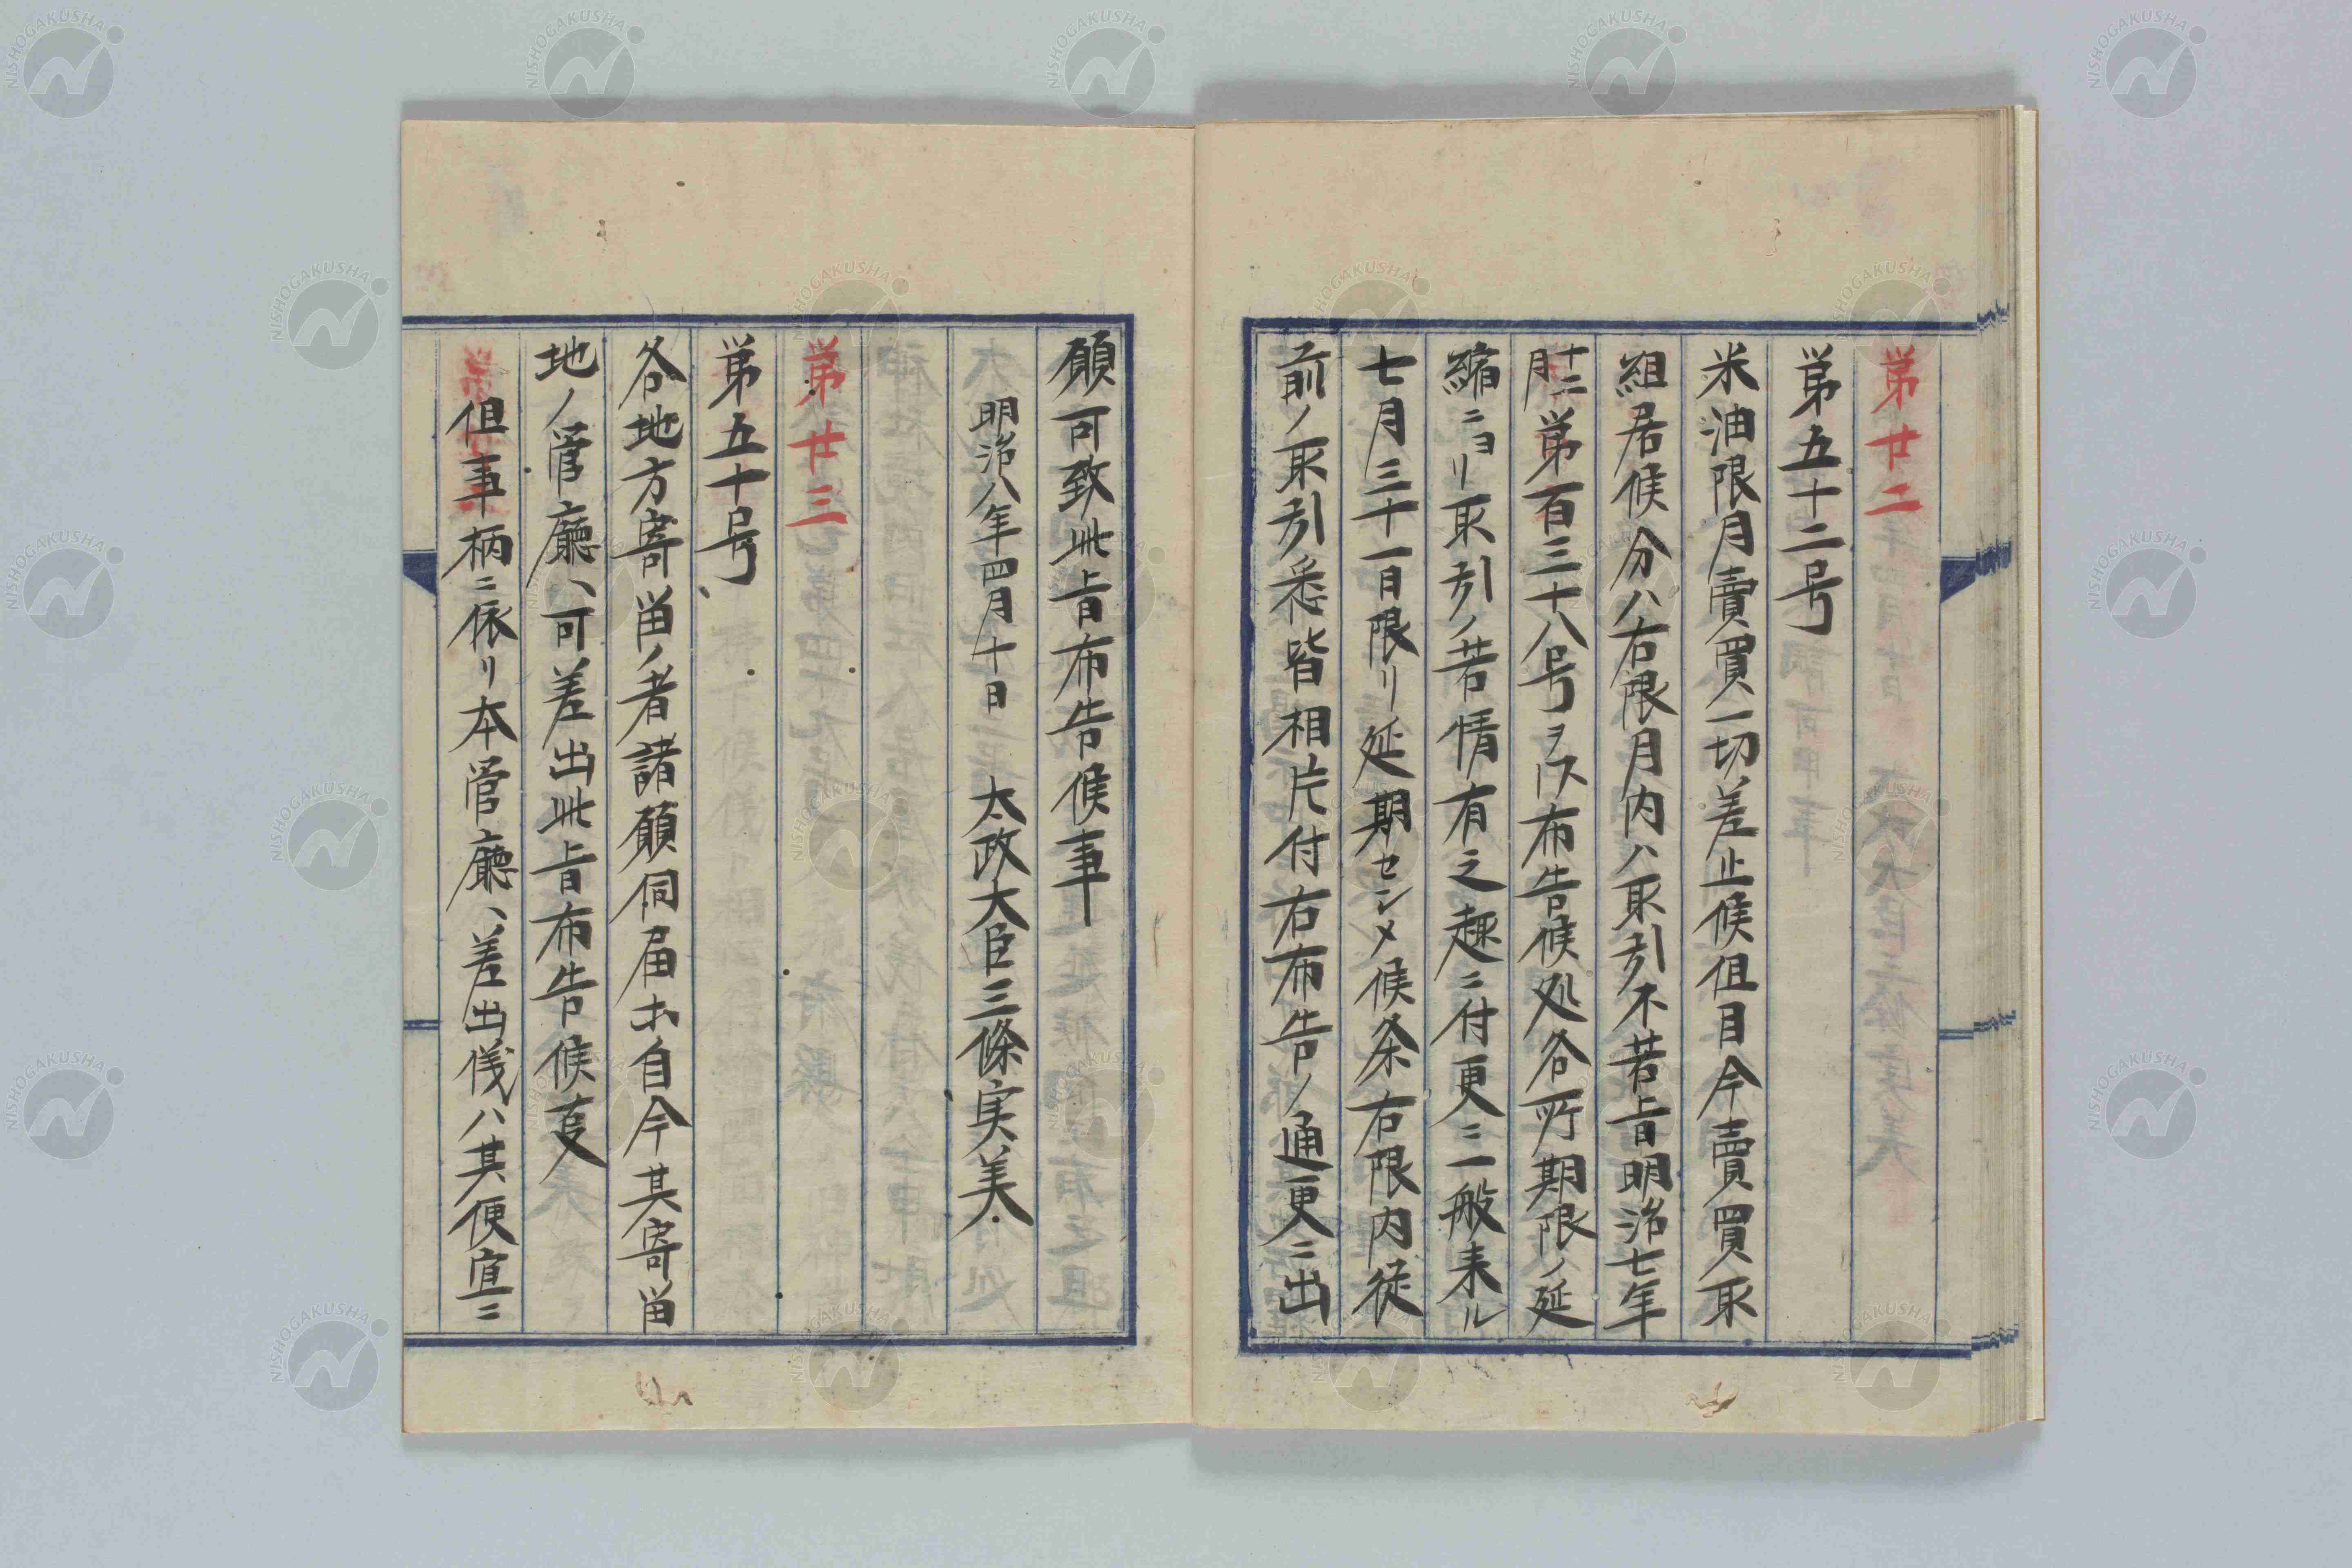 第廿二
第五十二号
米油限月賣買一切差止候但目今賣買取
組居候分ハ右限月内ハ取引不苦旨明治七年
十二月第百三十八号ヲ以布告候処各所期限ノ延
縮ニヨリ取引ノ苦情有之趣ニ付更ニ一般来ル
七月三十一日限リ延期セシメ候条右限内従
前ノ取引悉皆相片付右布告ノ通更ニ出
願可致此旨布告候事
明治八年四月十日 太政大臣三條実美
第廿三
第五十号
各地方寄畄ノ者諸願伺届ホ自今其寄畄
地ノ管廳ヘ可差出此旨布告候叓
但事柄ニ依リ本管廳ヘ差出儀ハ其便宜ニ
NISHOGAKUSHA